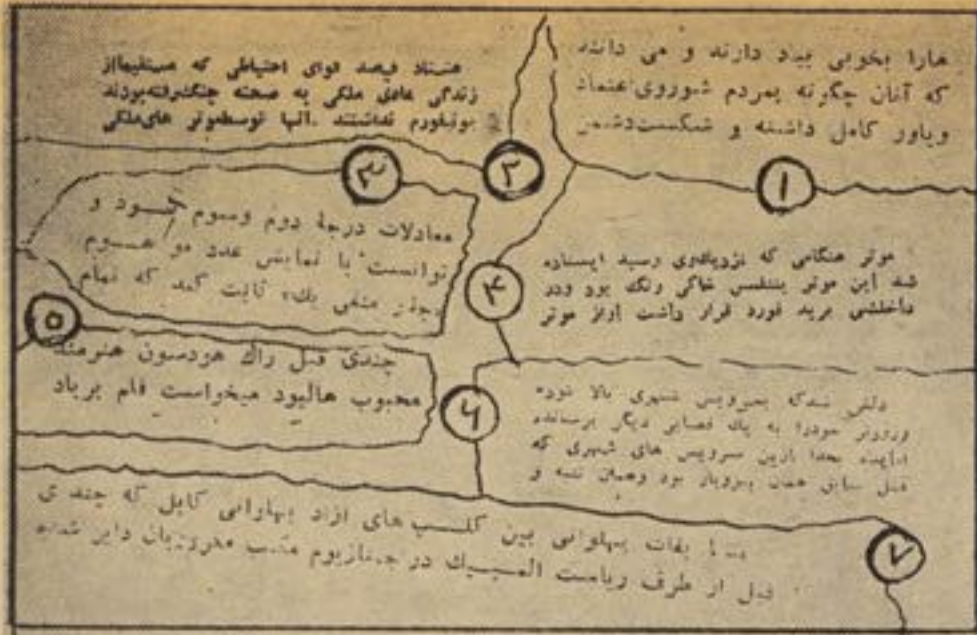 مارا بخوبی بیاد دارند و می دانند
که آنان چگونه بمردم شوروی اعتماد
وباور کامل داشته و شکست دشمن
۱
هشتاد فیصد قوای احتیاطی که مستقیماً از
زندگی عادی ملکی به صحنه جنگ رفته بودند
یونیفورم نداشتند . آنها توسط موتر های ملکی
۲
۳
معادلات درجۀ دوم وسوم و
توانست با نمایش عدد موهوم
جذر منفی یك» ثابت کند که تمام
موتر هنگامی که نزدیکتری رسید ایستاده
شد این موتر بنفش خاکی رنگ بود ودر
داخلش برید فورد قرار داشت از موتر
۴
۵
چندی قبل راك هودسون هنرمند
محبوب هالیود میخواست فلم برباد
۶
شهری بالا
به یك قصابی دیگر
سرویس های شهری که
قبل سابق همان بود وهمان تنه و
بین کلب های آزاد پهلوانی کابل که چندی
قبل از طرف ریاست المپیك در جمنازیوم دایر شده
۷